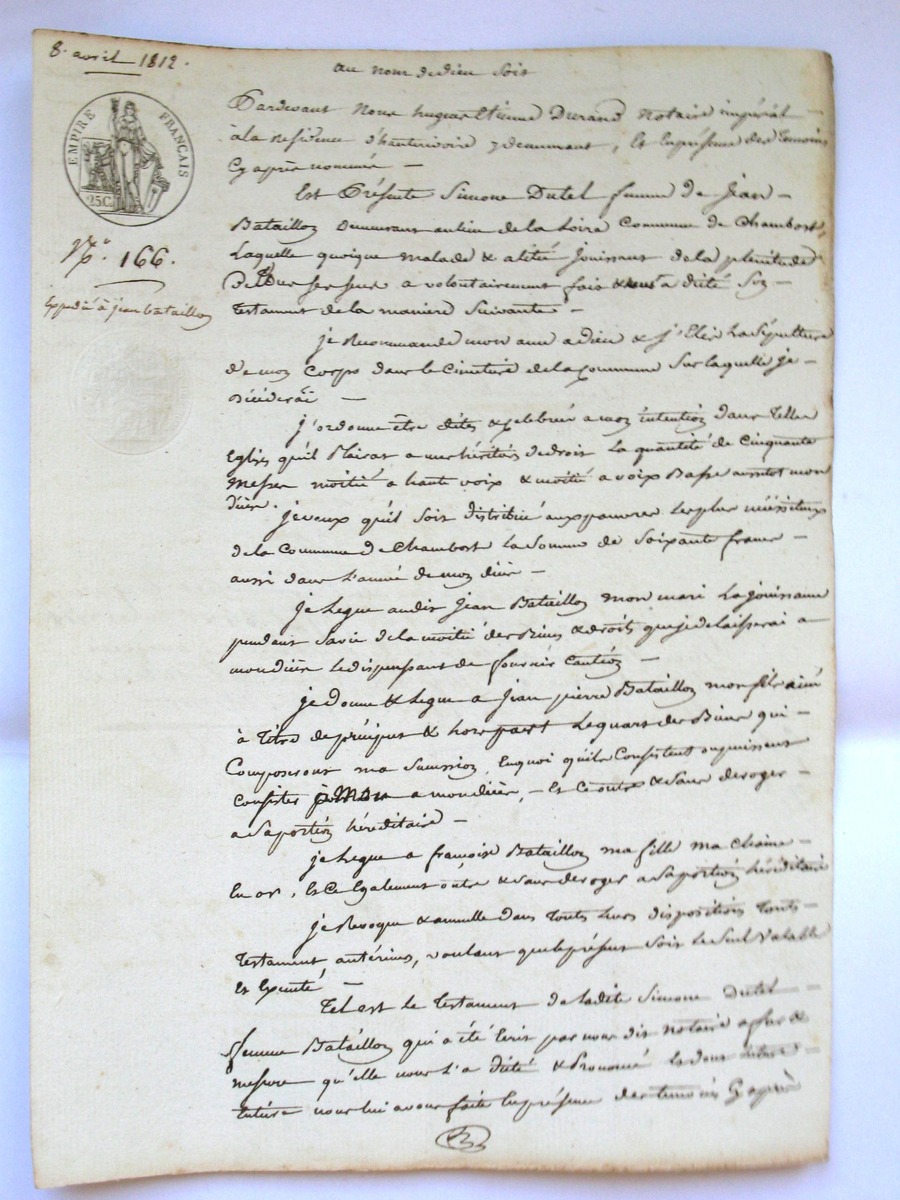 8. avril 1812.
au nom de dieu soit
EMPIRE FRANÇAIS
25C.
N.º 166.
Expédié à jean bataillon
Pardevant Nous hugues Etienne Durand Notaire impérial
à la residence d'hauterivoire y demeurant, Et En présence des temoins
Cy après nommés —
Est Présente Simone Dutel femme de Jean —
Bataillon demeurant au lieu de la Loire Commune de Chambost,
Laquelle quoique malade & alitée jouissant de la plenitude
De ses sens a volontairement fait & nous a dicté Son —
Testament de la maniere Suivante —
je Recommande mon ame a dieu & j'Elis La Sépulture
de mon Corps dans le Cimetière de la Commune Sur laquelle je —
Décéderai —
j'ordonne être dites & celebrées a mon intention dans telles
Eglises qu'il Plaira a mes héritiers de droit La quantité de Cinquante
Messes moitié a haute voix & moitié a voix Basse aussitot mon
décès.
je veux qu'il Soit distribué aux pauvres Les plus nécéssiteux
de la Commune de Chambost La Somme de Soixante francs —
aussi dans L'année de mon décès —
je Legue audit Jean Bataillon mon mari La jouissance
pendant Sa vie de la moitié des Biens & droits que je delaisserai a
mon décès Le dispensant de fournir Caution —
je Donne & Legue a Jean pierre Bataillon mon fils ainé
à Titre de préciput & hors part Le quart des Biens qui —
Composeront ma Succession, En quoi qu'ils Consistent ou puissent
Consister a mon décès, — Et Ce outre & Sans deroger —
a Sa portion héréditaire —
je Legue a françoise Bataillon ma fille ma Chaine —
En or, Et Ce Egalement outre & Sans deroger a Sa portion héréditaire
je Revoque & annulle dans Toutes leurs dispositions Touts —
Testament antérieurs, voulant que le présent Soit Le Seul Valable
Et Executé —
Tel est le Testament de ladite Simone Dutel —
femme Bataillon qui a été Ecrit par nous dit Notaire a fur &
mesure qu'elle nous L'a dicté & Prononcé Et dont
Lecture nous lui avons faite En présence des temoins Cy après